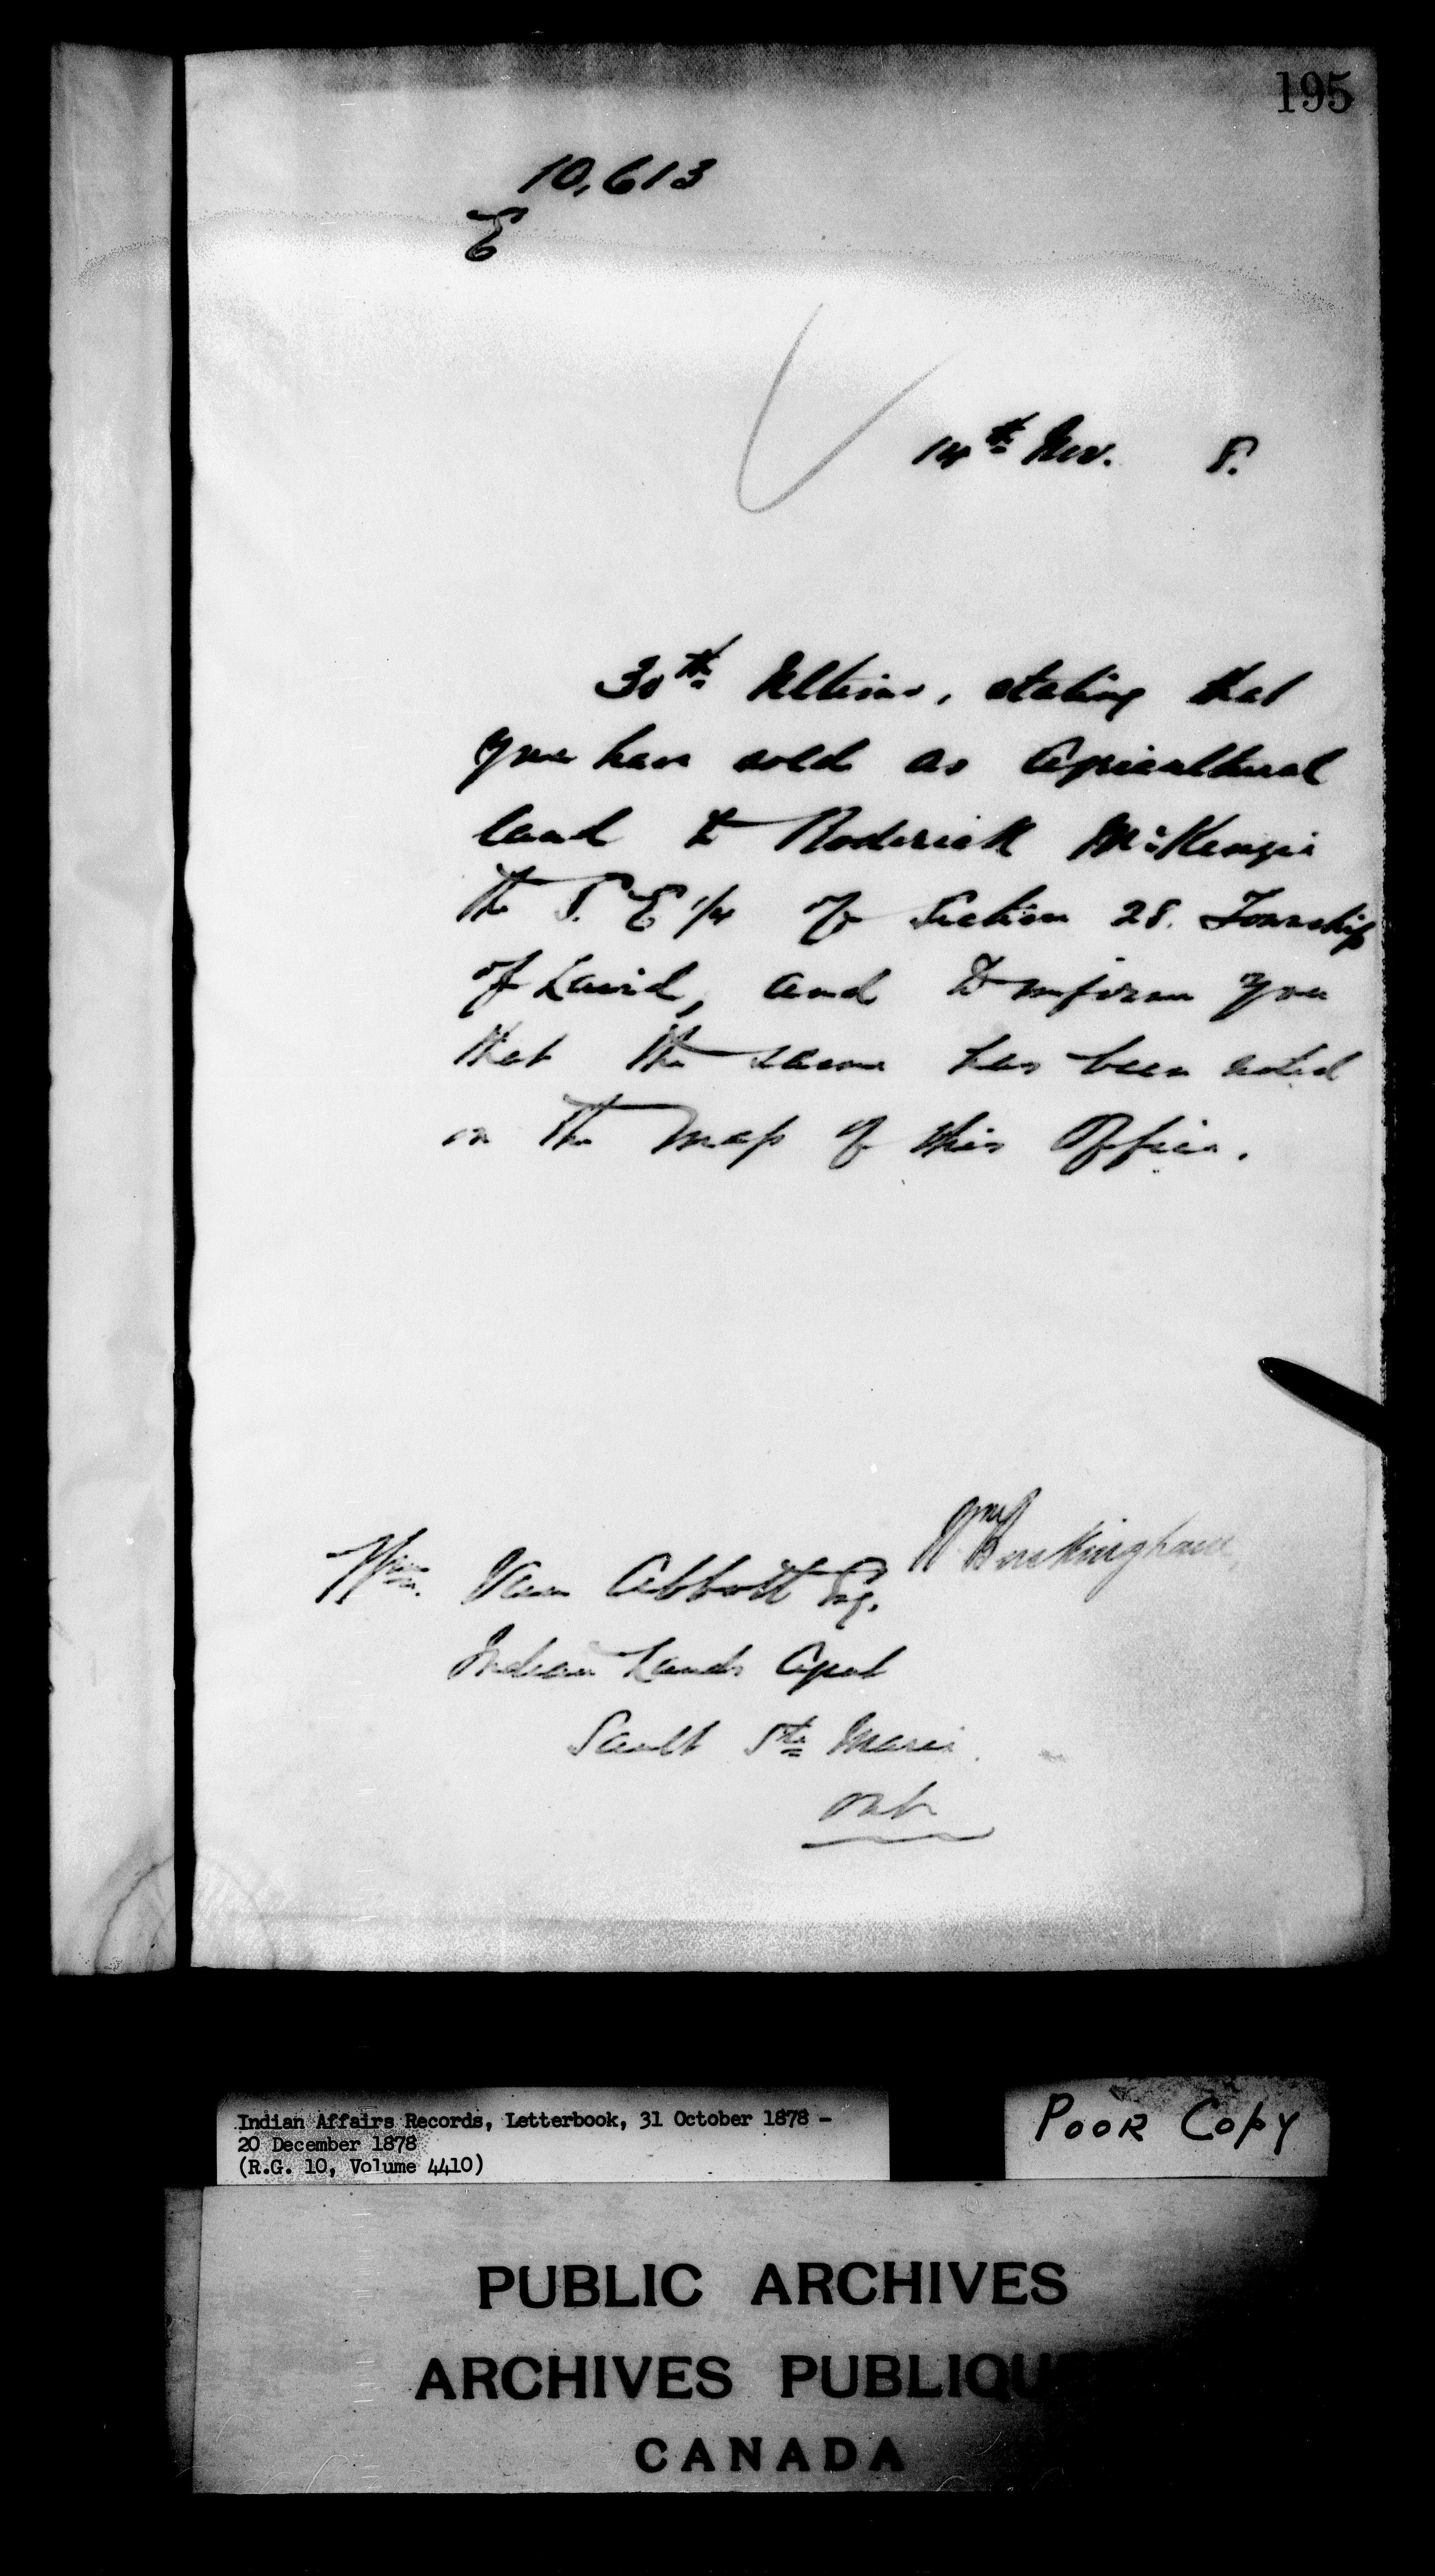 195
10,613
E
14th Nov. 8.
30th Ultimo, stating that
you have sold as Agricultural
land to Roderick McKenzie
the S. E 1/4 of Section 28. Township
of Laird, and to inform you
that the same has been noted
on the map of this Office.
Wm Buckingham
Wm. Van Abbott Esq.
Indian Lands Agent
Sault Ste Marie
Ont
Indian Affairs Records, Letterbook, 31 October 1878 -
20 December 1878
(R.G. 10, Volume 4410)
POOR COPY
PUBLIC ARCHIVES
ARCHIVES PUBLIQU
CANADA